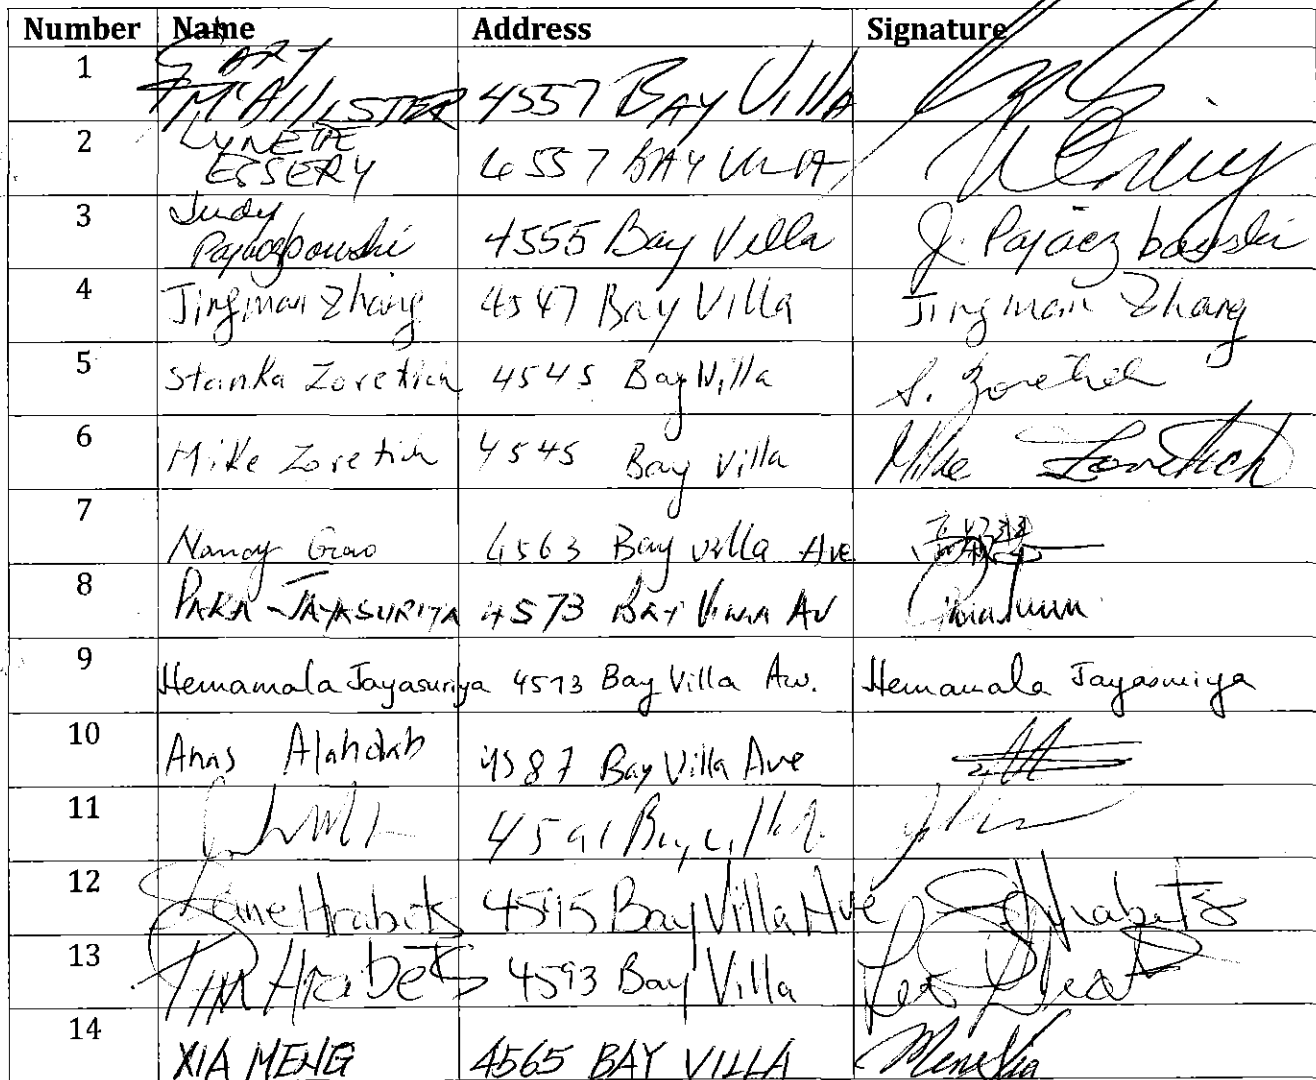 Number Name Address Signature
1 GARY McAllISTER 4557 BAY Villa
2 LYNETTE ESSERY 4557 BAY VILLA
3 Judy Pajaczkowski 4555 Bay Villa J. Pajaczkowski
4 Jingman Zhang 4547 Bay Villa Jingman Zhang
5 Stanka Zoretich 4545 Bay Villa S. Zoretich
6 Mike Zoretich 4545 Bay Villa Mike Zoretich
7 Nancy Gao 4563 Bay villa Ave
8 PARA JAYASURIYA 4573 BAY VILLA AV
9 Hemamala Jayasuriya 4573 Bay Villa Av. Hemamala Jayasuriya
10 Anas Alahdab 4587 Bay Villa Ave
11 4591
12 Hrabets Bay Villa Ave Hrabets
13 Tim Hrabets 4593 Bay Villa
14 XIA MENG 4565 BAY VILLA Meng Xia